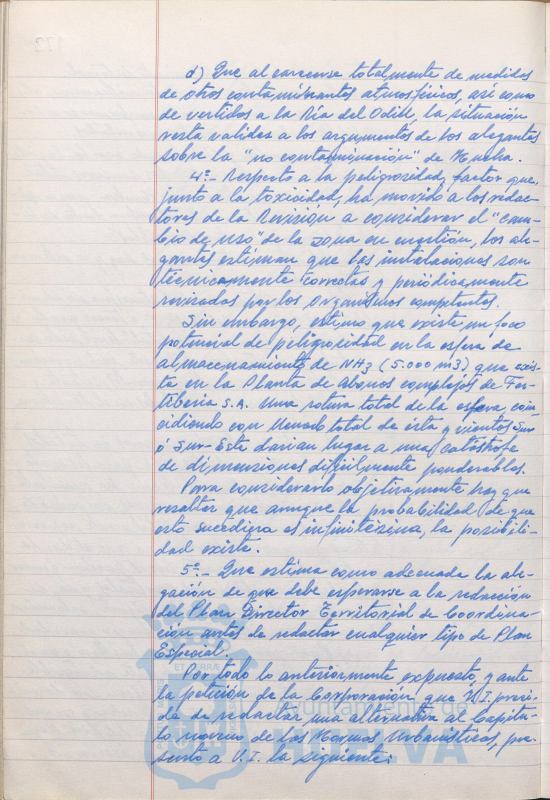 d) Que al carecerse totalmente de medidas
de otros contaminantes atmosféricos, así como
de vertidos a la Ría del Odiel, la situación
resta validez a los argumentos de los alegantes
sobre la "no contaminación" de Huelva.
4º.- Respecto a la peligrosidad, factor que,
junto a la toxicidad, ha movido a los redac-
tores de la Revisión a considerar el "cam-
bio de uso" de la zona en cuestión, los ale-
gantes estiman que las instalaciones son
técnicamente correctas y periódicamente
revisadas por los Organismos competentes.
Sin embargo, estimo que existe un foco
potencial de peligrosidad en la esfera de
almacenamiento de NH3 (5.000 m3) que exis-
te en la Planta de abonos complejos de Fer-
tiberia S.A. Una rotura total de la esfera coin-
cidiendo con llenado total de ésta y vientos Sur
ó Sur-Este darían lugar a una catástrofe
de dimensiones difícilmente ponderables.
Para considerarlo objetivamente hay que
resaltar que aunque la probabilidad de que
esto sucediera es infinitésima, la posibili-
dad existe.
5º.- Que estima como adecuada la ale-
gación de que debe esperarse a la redacción
del Plan Director Territorial de Coordina-
ción antes de redactar cualquier tipo de Plan
Especial.
Por todo lo anteriormente expuesto, y ante
la petición de la Corporación que V.I. presi-
de de redactar una alternativa al Capítu-
lo noveno de las Normas Urbanísticas, pre-
sento a V.I. la siguiente:
Ayuntamiento de
HUELVA